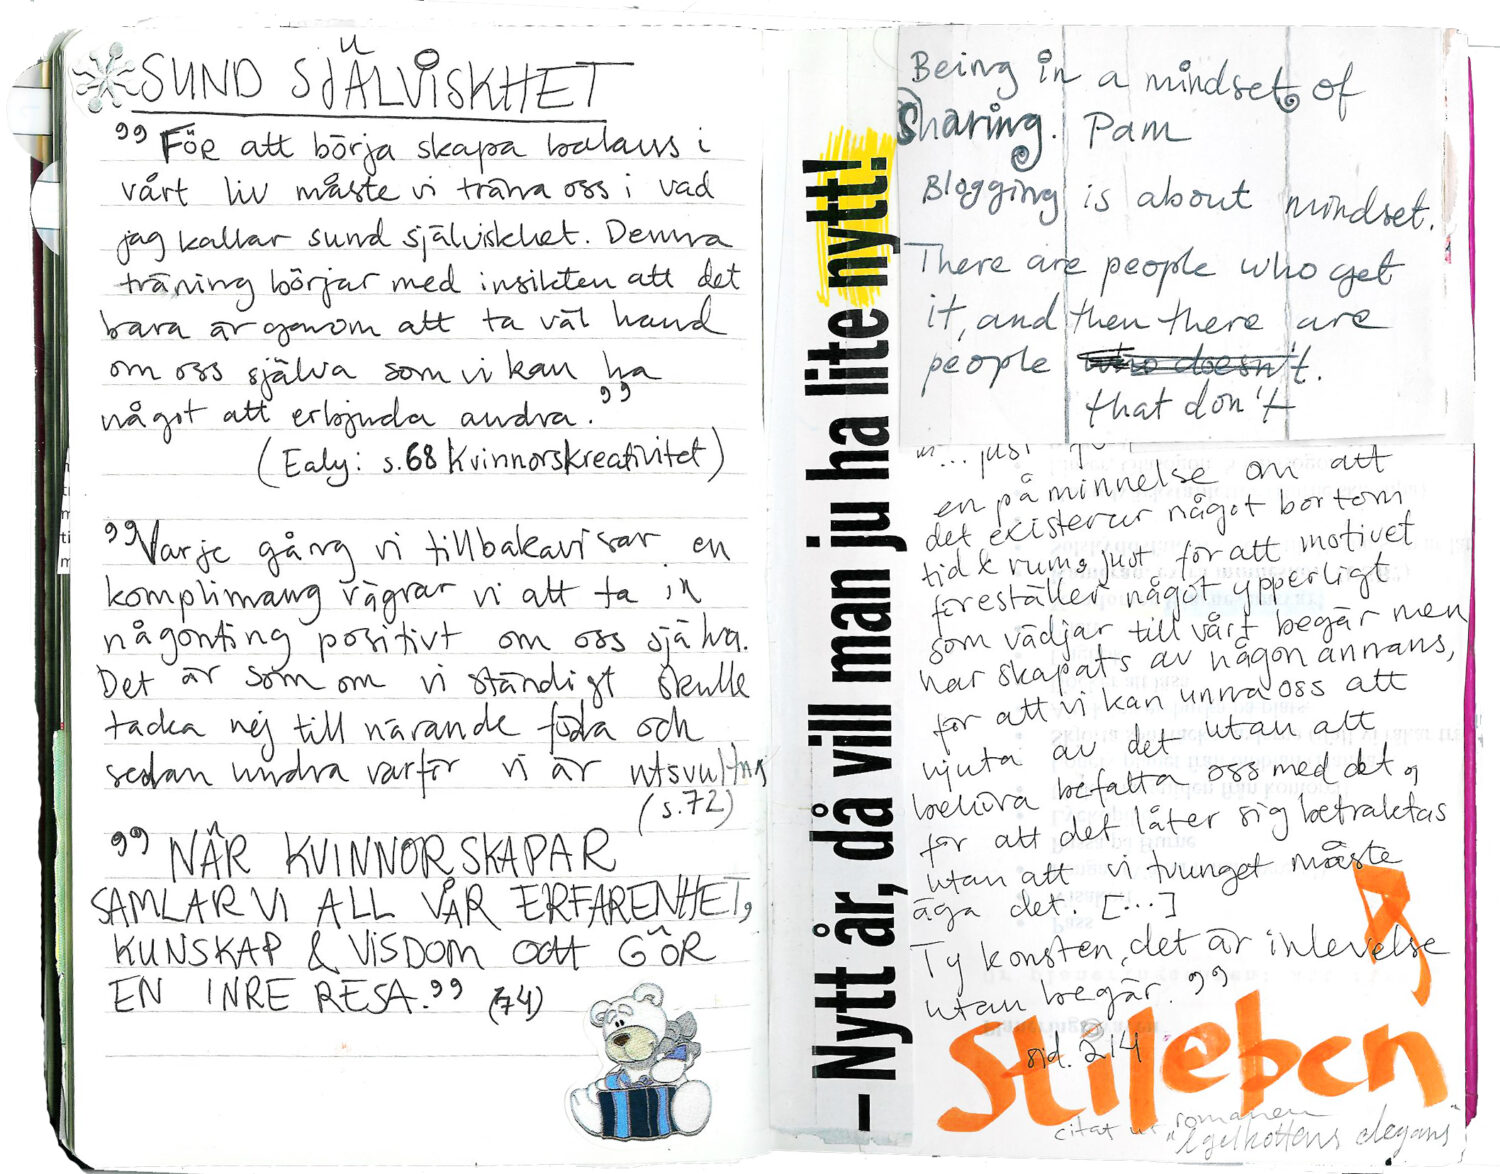 SUND SJÄLVISKHET
”FÖR att börja skapa balans i
vårt liv måste vi träna oss i vad
jag kallar sund själviskhet. Denna
träning börjar med insikten att det
bara är genom att ta väl hand
om oss själva som vi kan ha
något att erbjuda andra.”
(Ealy: s.68 Kvinnorskreativitet)
”Varje gång vi tillbakavisar en
komplimang vägrar vi att ta in
någonting positivt om oss själva.
Det är som om vi ständigt skulle
tacka nej till närande föda och
sedan undra varför vi är utsvultna
(s.72)
”NÄR KVINNOR SKAPAR
SAMLAR VI ALL VÅR ERFARENHET,
KUNSKAP & VISDOM OCH GÖR
EN INRE RESA.” (74)
– Nytt år, då vill man ju ha lite nytt!
Being in a mindset of
Sharing. Pam
Blogging is about mindset.
There are people who get
it, and then there are
people who doesn't.
that don't
”... just
en påminnelse om att
det existerar något bortom
tid & rum, just för att motivet
föreställer något ypperligt
som vädjar till vårt begär men
har skapats av någon annans,
för att vi kan unna oss att
njuta av det utan att
behöva befatta oss med det,
för att det låter sig betraktas
utan att vi tvunget måste
äga det. [...]
Ty konsten, det är inlevelse
utan begär.”
sid. 214
Stilleben
citat ur romanen
"Igelkottens elegans"